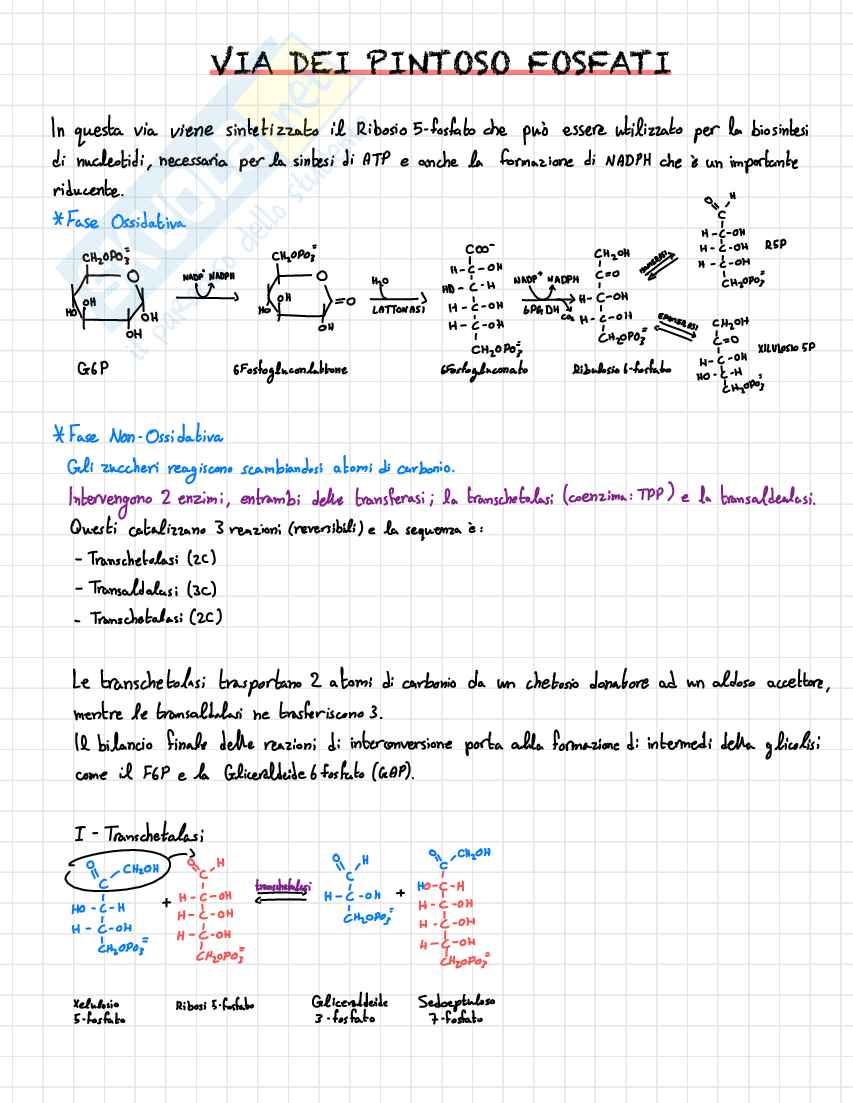 VIA DEI PINTOSO FOSFATI
In questa via viene sintetizzato il Ribosio 5-fosfato che può essere utilizzato per la biosintesi
di nucleotidi, necessaria per la sintesi di ATP e anche la formazione di NADPH che è un importante
riducente.
*Fase Ossidativa
CH₂OPO₃⁼ O OH HO OH OH
NADP⁺ NADPH
CH₂OPO₃⁼ O OH HO =O OH
H₂O
LATTONASI
COO⁻
H-C-OH
HO-C-H
H-C-OH
H-C-OH
CH₂OPO₃⁼
NADP⁺ NADPH
6PGDH CO₂
CH₂OH
C=O
H-C-OH
H-C-OH
CH₂OPO₃⁼
O H
C
H-C-OH
H-C-OH R5P
H-C-OH
CH₂OPO₃⁼
EPIMERASI
CH₂OH
C=O
H-C-OH
HO-C-H
CH₂OPO₃⁼
XILULOSIO 5P
G6P
6Fosfogluconlattone
6Fosfogluconato
Ribulosio 6-fosfato
*Fase Non-Ossidativa
Gli zuccheri reagiscono scambiandosi atomi di carbonio.
Intervengono 2 enzimi, entrambi delle transferasi; la transchetolasi (coenzima: TPP) e la transaldealasi.
Questi catalizzano 3 reazioni (reversibili) e la sequenza è:
- Transchetolasi (2C)
- Transaldalasi (3C)
- Transchetalasi (2C)
Le transchetolasi trasportano 2 atomi di carbonio da un chetosio donatore ad un aldoso accettore,
mentre le transaldalasi ne trasferiscono 3.
Il bilancio finale delle reazioni di interconversione porta alla formazione di intermedi della glicolisi
come il F6P e la Gliceraldeide 6 fosfato (GAP).
I - Transchetalasi
O CH₂OH
C
HO-C-H
H-C-OH
CH₂OPO₃⁼
+
O H
C
H-C-OH
H-C-OH
H-C-OH
CH₂OPO₃⁼
transchetalasi
O H
C
H-C-OH
CH₂OPO₃⁼
+
O CH₂OH
C
HO-C-H
H-C-OH
H-C-OH
H-C-OH
CH₂OPO₃⁼
Xelulosio
5-fosfato
Ribosi 5-fosfato
Gliceraldeide
3-fosfato
Sedoeptuloso
7-fosfato